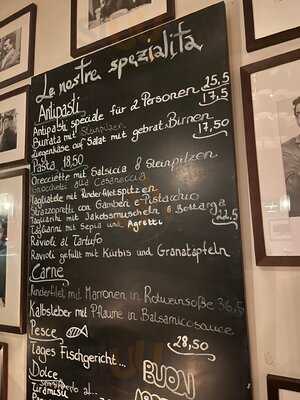 Le nostre specialita
Antipasti
Antipasti speciale für 2 Personen 25,5
Burrata mit Steinpilzen 17,5
Ziegenkäse auf Salat mit gebrat. Birnen 17,50
Pasta 18,50
Orecciette mit Salsiccia & Steinpilzen
Gnocchetti alla
Tagliatelle mit Rinderfiletspitzen
Strozzapretti con Gamberi e Pistacchio
Taglierini mit Jakobsmuscheln & Bottarga
Tagliarini mit Sepia und Agretti 22,5
Ravioli al Tartufo
Ravioli gefüllt mit Kürbis und Granatäpfeln
Carne
Rinderfilet mit Marronen in Rotweinsoße 36,5
Kalbsleber mit Pflaume in Balsamicosauce
28,50
Pesce
Tages Fischgericht...
Dolce
Tiramisu
al...
BUON